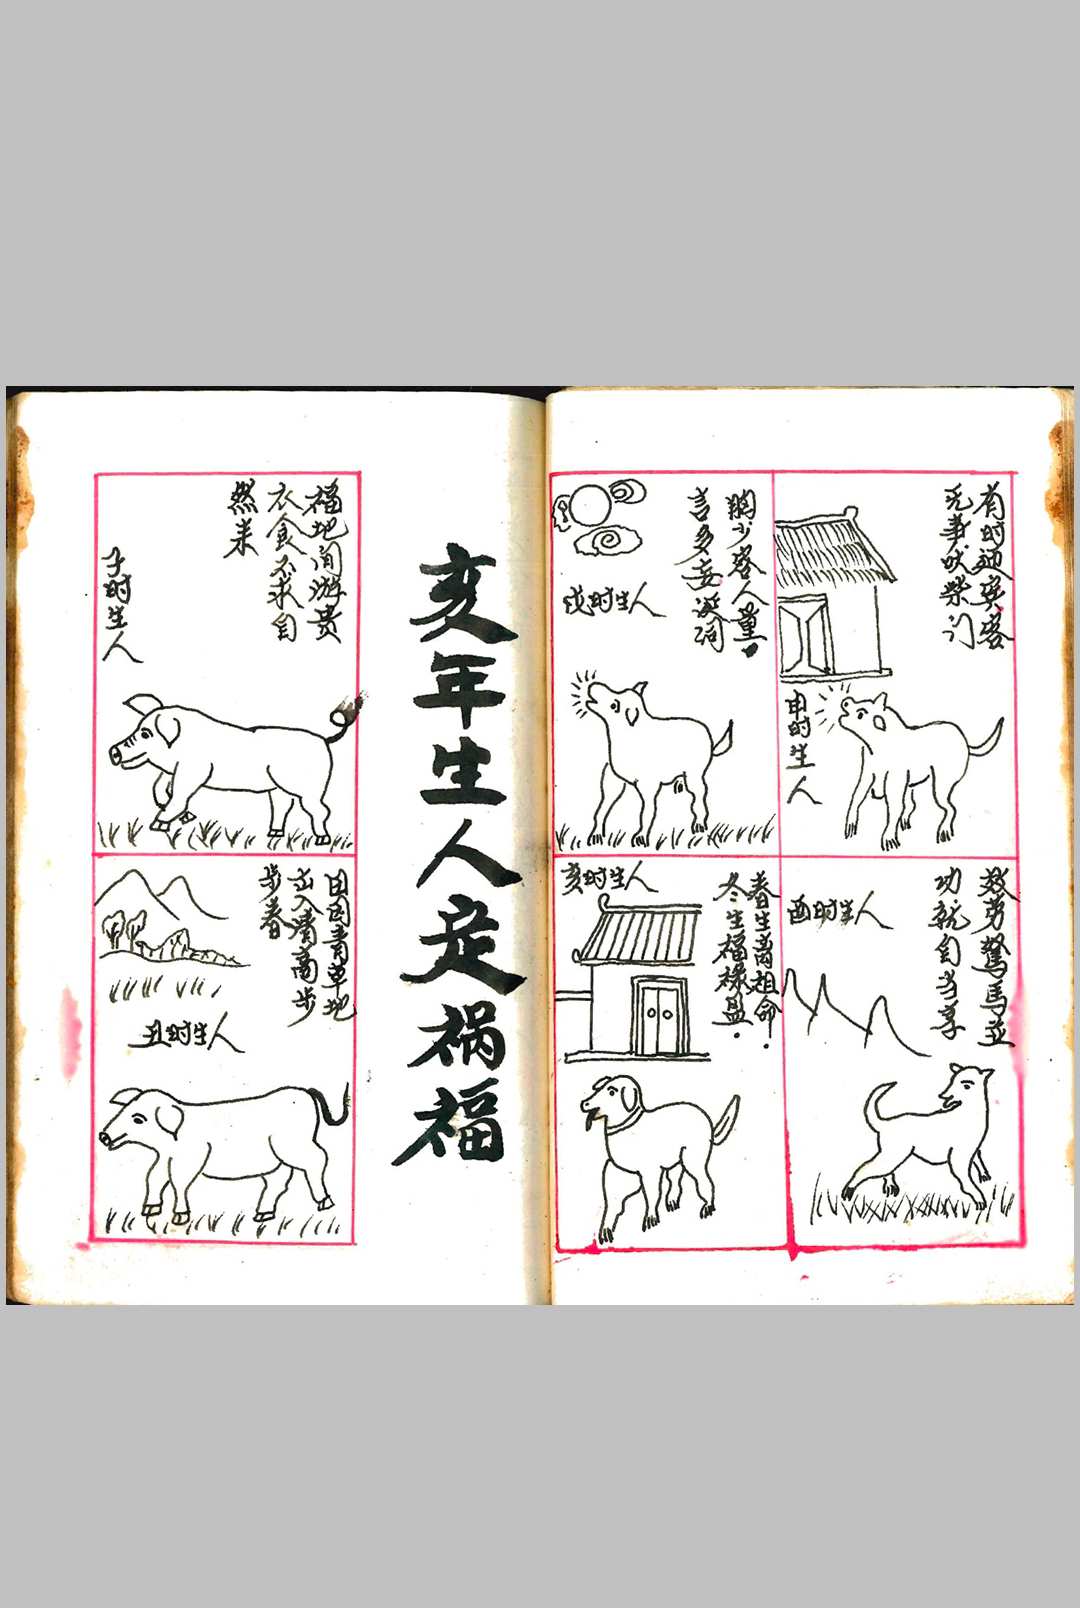 有时迎宾客
无事吠柴门
申时生人
效劳驽马並
功就自当享
酉时生人
胸少容人量
言多妄诞词
戌时生人
春生离祖命
冬生福禄盈
亥时生人
亥年生人定祸福
福地闲游贵
衣食不求自
然来
子时生人
田园青草地
出入清高步
步春
丑时生人